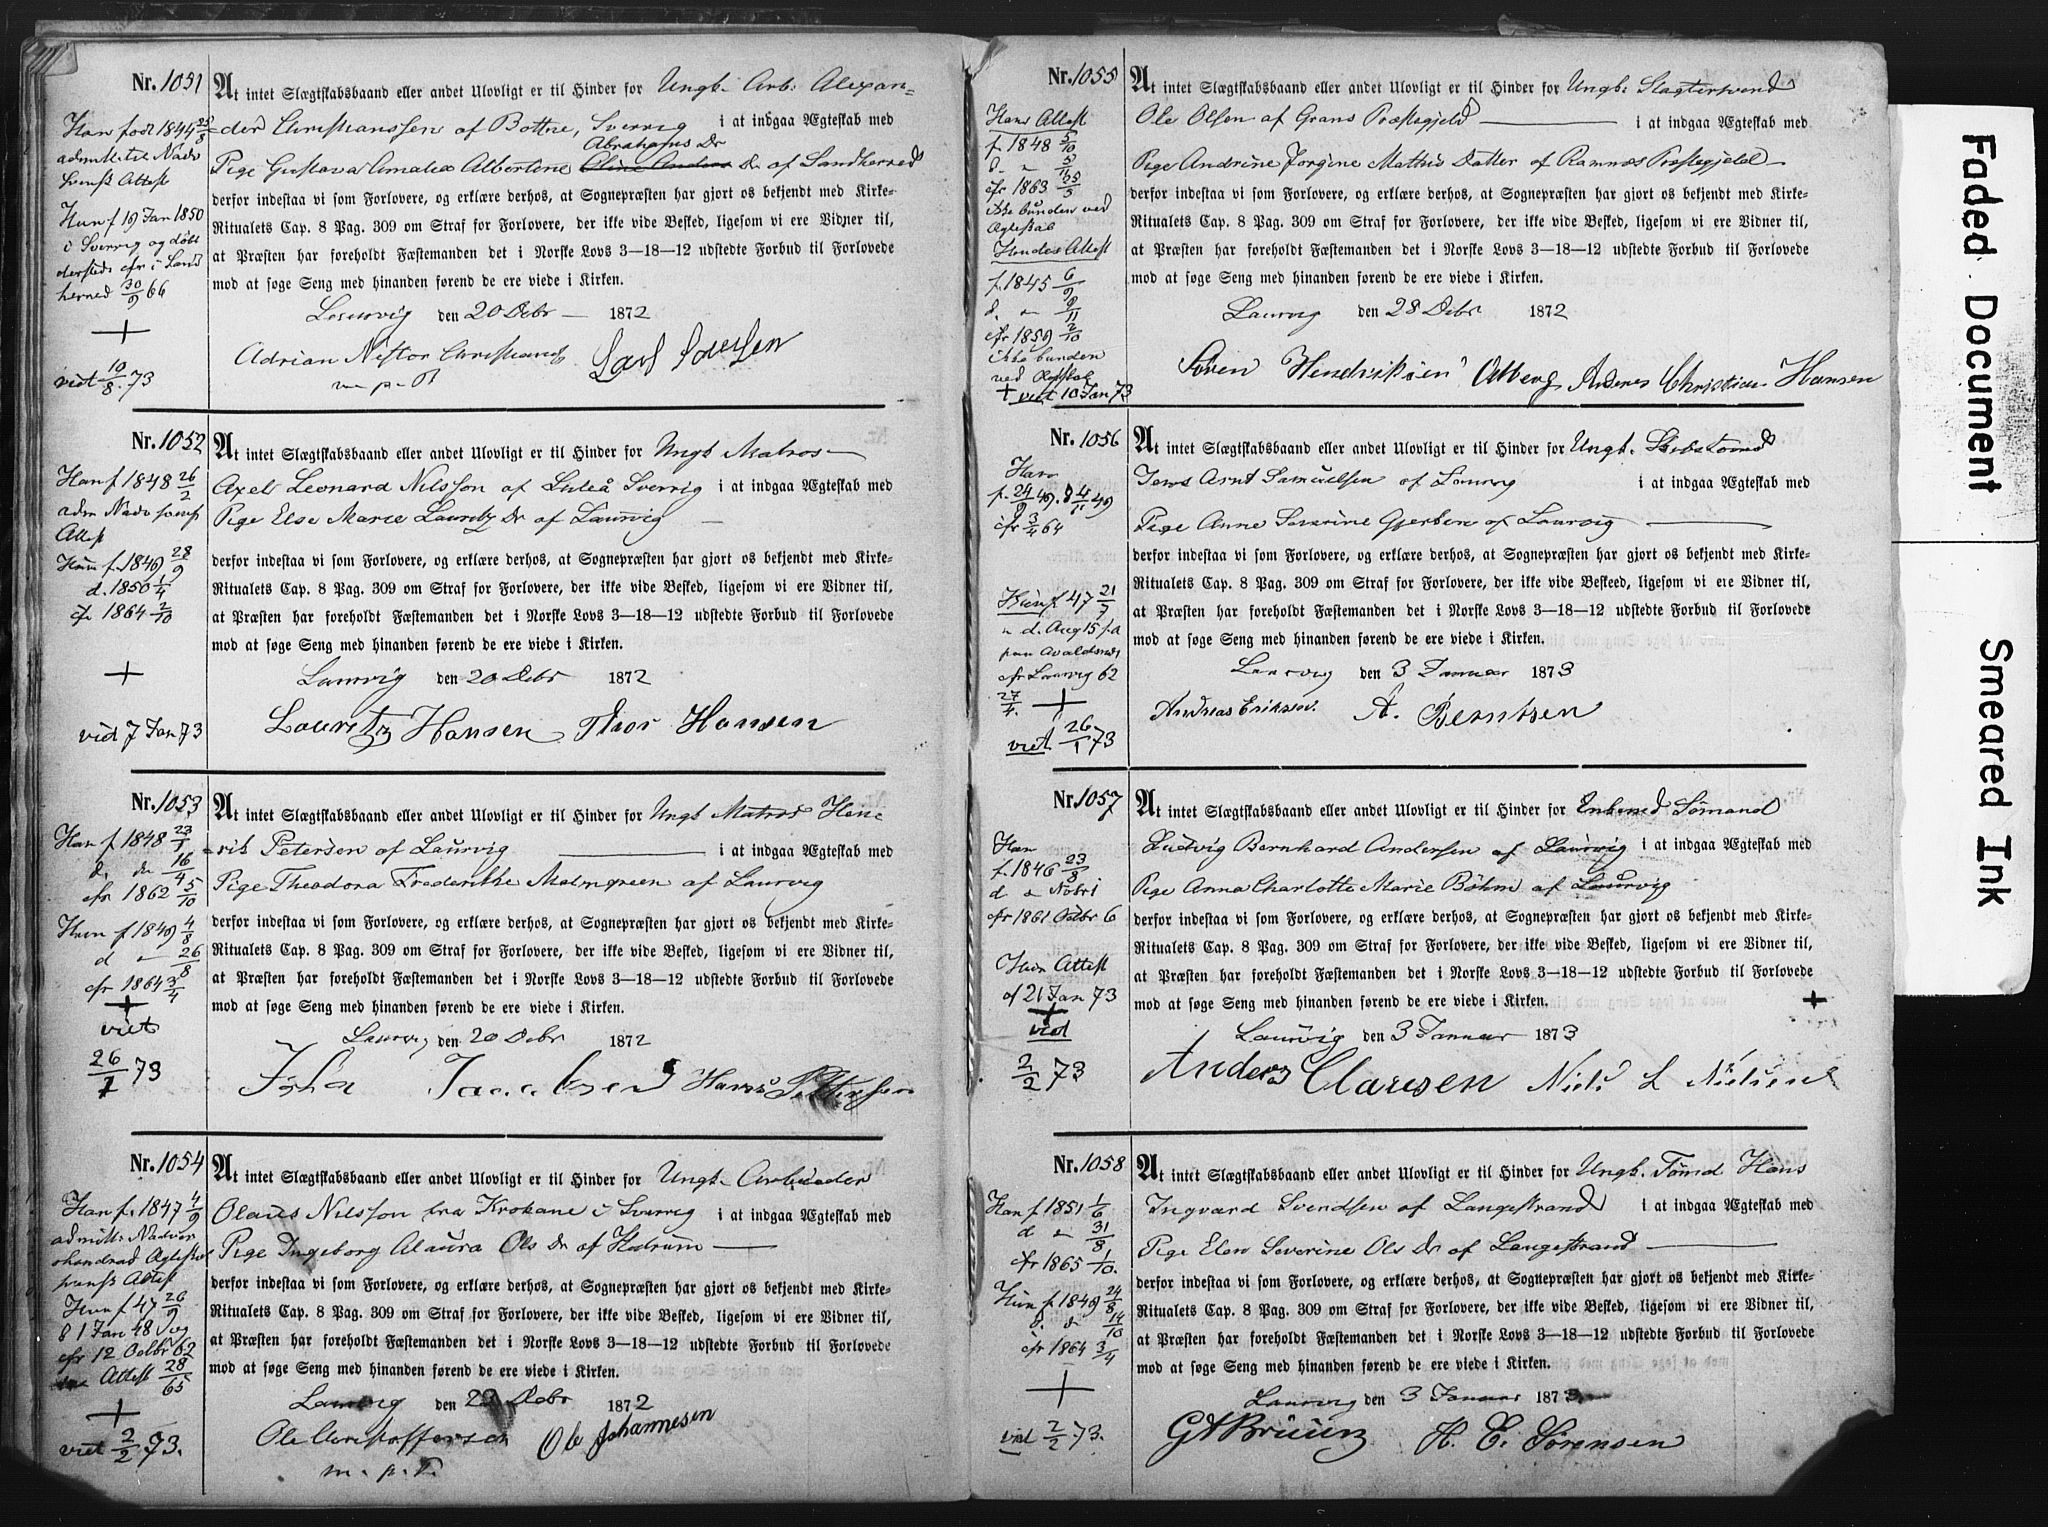 Nr. 1051
At intet Slægtskabsbaand eller andet Ulovligt er til Hinder for Ungk. Arb. Alexan-
der Christianssen af Bottne, Sverrig i at indgaa Ægteskab med
Abrahams Dr
Pige Gustava Amalia Albertine Dr. af Sandherred
derfor indestaa vi som Forlovere, og erklære derhos, at Sognepræsten har gjort os bekjendt med Kirke-
Ritualets Cap. 8 Pag. 309 om Straf for Forlovere, der ikke vide Besked, ligesom vi ere Vidner til,
at Præsten har foreholdt Fæstemanden det i Norske Lovs 3—18—12 udstedte Forbud til Forlovede
mod at søge Seng med hinanden førend de ere viede i Kirken.
Laurvig den 20 Debr 1872
Adrian Christians
m. p. P.
Han født 1844 25/8
svensk Attest
Hun f 19 Jan 1850
i Sverrig og døbt
dersteds cfr i Sand
herred 30/9 66
+
viet 10/8. 73
Nr. 1052
At intet Slægtskabsbaand eller andet Ulovligt er til Hinder for Ungk Matros
Axel Leonard Nilsson af Luleå Sverrig i at indgaa Ægteskab med
Pige Else Marie Lauritz Dr af Laurvig
derfor indestaa vi som Forlovere, og erklære derhos, at Sognepræsten har gjort os bekjendt med Kirke-
Ritualets Cap. 8 Pag. 309 om Straf for Forlovere, der ikke vide Besked, ligesom vi ere Vidner til,
at Præsten har foreholdt Fæstemanden det i Norske Lovs 3—18—12 udstedte Forbud til Forlovede
mod at søge Seng med hinanden førend de ere viede i Kirken.
Laurvig den 20 Debr 1872
Lauritz Hansen Thor Hansen
Han f 1848 26/2
Attest
Hun f. 1849 28/9
d. 1850 1/4
cfr 1864 2/10
+
vid 7 Jan 73
Nr. 1053
At intet Slægtskabsbaand eller andet Ulovligt er til Hinder for Ungk Matros Hen-
rik Petersen af Laurvig i at indgaa Ægteskab med
Pige Theodora Frederikke Malmgreen af Laurvig
derfor indestaa vi som Forlovere, og erklære derhos, at Sognepræsten har gjort os bekjendt med Kirke-
Ritualets Cap. 8 Pag. 309 om Straf for Forlovere, der ikke vide Besked, ligesom vi ere Vidner til,
at Præsten har foreholdt Fæstemanden det i Norske Lovs 3—18—12 udstedte Forbud til Forlovede
mod at søge Seng med hinanden førend de ere viede i Kirken.
Laurvig den 20 Debr 1872
Hans Pettersen
Han f 1848 23/1
d. do 16/4
cfr 1862 5/10
Hun f 1849 4/8
d " 26/8
cfr 1864 3/4
+
viet
26/1 73
Nr. 1054
At intet Slægtskabsbaand eller andet Ulovligt er til Hinder for Ungk. Arbeider
Olaus Nilsson fra Krokane i Sverrig i at indgaa Ægteskab med
Pige Ingeborg Alaura Ols Dr af Hedrum
derfor indestaa vi som Forlovere, og erklære derhos, at Sognepræsten har gjort os bekjendt med Kirke-
Ritualets Cap. 8 Pag. 309 om Straf for Forlovere, der ikke vide Besked, ligesom vi ere Vidner til,
at Præsten har foreholdt Fæstemanden det i Norske Lovs 3—18—12 udstedte Forbud til Forlovede
mod at søge Seng med hinanden førend de ere viede i Kirken.
Laurvig den Debr 1872
Ole Christoffersen Ole Johannesen
m. p. P.
Han f. 1847 4/9
svensk Attest
Hun f 47 26/9
d 1 Jan 48
cfr 12 Octbr 62
Attest 28/65
+
viet 2/2 73.
Nr. 1055
At intet Slægtskabsbaand eller andet Ulovligt er til Hinder for Ungk. Slagtersvend
Ole Olsen af Grans Præstegjeld i at indgaa Ægteskab med
Pige Andrine Jorgine Mathis Datter af Ramnæs Præstegjeld
derfor indestaa vi som Forlovere, og erklære derhos, at Sognepræsten har gjort os bekjendt med Kirke-
Ritualets Cap. 8 Pag. 309 om Straf for Forlovere, der ikke vide Besked, ligesom vi ere Vidner til,
at Præsten har foreholdt Fæstemanden det i Norske Lovs 3—18—12 udstedte Forbud til Forlovede
mod at søge Seng med hinanden førend de ere viede i Kirken.
Laurvig den 28 Debr 1872
Søren Hendriksen Anders Christian Hansen
Hans Attest
f. 1848 5/10
cfr 1863
ikke bunden ved
Ægteskab
Hendes Attest
f. 1845 6/9
d. " 9/11
cfr 1859 2/10
ikke bunden
ved Ægteskab
+ viet 10 Jan 73
Nr. 1056
At intet Slægtskabsbaand eller andet Ulovligt er til Hinder for Ungk.
Jens Arnt Samuelsen af Laurvig i at indgaa Ægteskab med
Pige Anne Severine Gjertsen af Laurvig
derfor indestaa vi som Forlovere, og erklære derhos, at Sognepræsten har gjort os bekjendt med Kirke-
Ritualets Cap. 8 Pag. 309 om Straf for Forlovere, der ikke vide Beskeed, ligesom vi ere Vidner til,
at Præsten har foreholdt Fæstemanden det i Norske Lovs 3—18—12 udstedte Forbud til Forlovede
mod at søge Seng med hinanden førend de ere viede i Kirken.
Laurvig den 3 Januar 1873
Andreas Eriksen A. Berntsen
Han
f. 24/9 49. d 4/11 49
cfr 3/4 64
Hun f 47 21/7
d. Aug 15 s.a
paa Avaldsnæs
cfr Laurvig 62
27/4. +
viet 26/1 73
Nr. 1057
At intet Slægtskabsbaand eller andet Ulovligt er til Hinder for Enkemd Sømand
Ludvig Bernhard Andersen af Laurvig i at indgaa Ægteskab med
Pige Anna Charlotte Marie Bøhm af Laurvig
derfor indestaa vi som Forlovere, og erklære derhos, at Sognepræsten har gjort os bekjendt med Kirke-
Ritualets Cap. 8 Pag. 309 om Straf for Forlovere, der ikke vide Besked, ligesom vi ere Vidner til,
at Præsten har foreholdt Fæstemanden det i Norske Lovs 3—18—12 udstedte Forbud til Forlovede
mod at søge Seng med hinanden førend de ere viede i Kirken. +
Laurvig den 3 Januar 1873
Anders Clausen Niels L Nielsen
Han
f. 1846 23/8
d " Novbr 1
cfr 1861 Octbr 6
Hun Attest
d 21 Jan 73
+
vied
2/2 73
Nr. 1058
At intet Slægtskabsbaand eller andet Ulovligt er til Hinder for Ungk. Tømd Hans
Ingvard Svendsen af Langestrand i at indgaa Ægteskab med
Pige Elen Severine Ols Dr af Langestrand
derfor indestaa vi som Forlovere, og erklære derhos, at Sognepræsten har gjort os bekjendt med Kirke-
Ritualets Cap. 8 Pag. 309 om Straf for Forlovere, der ikke vide Besked, ligesom vi ere Vidner til,
at Præsten har foreholdt Fæstemanden det i Norske Lovs 3—18—12 udstedte Forbud til Forlovede
mod at søge Seng med hinanden førend de ere viede i Kirken.
Laurvig den 3 Januar 1873
H. C. Sørensen
Han f 1851 1/6
d " 31/8
cfr 1865 1/10.
Hun f 1849 24/8
d. d 14/10
cfr 1864 3/4
+
vid 2/2 73.
Faded Document
Smeared Ink